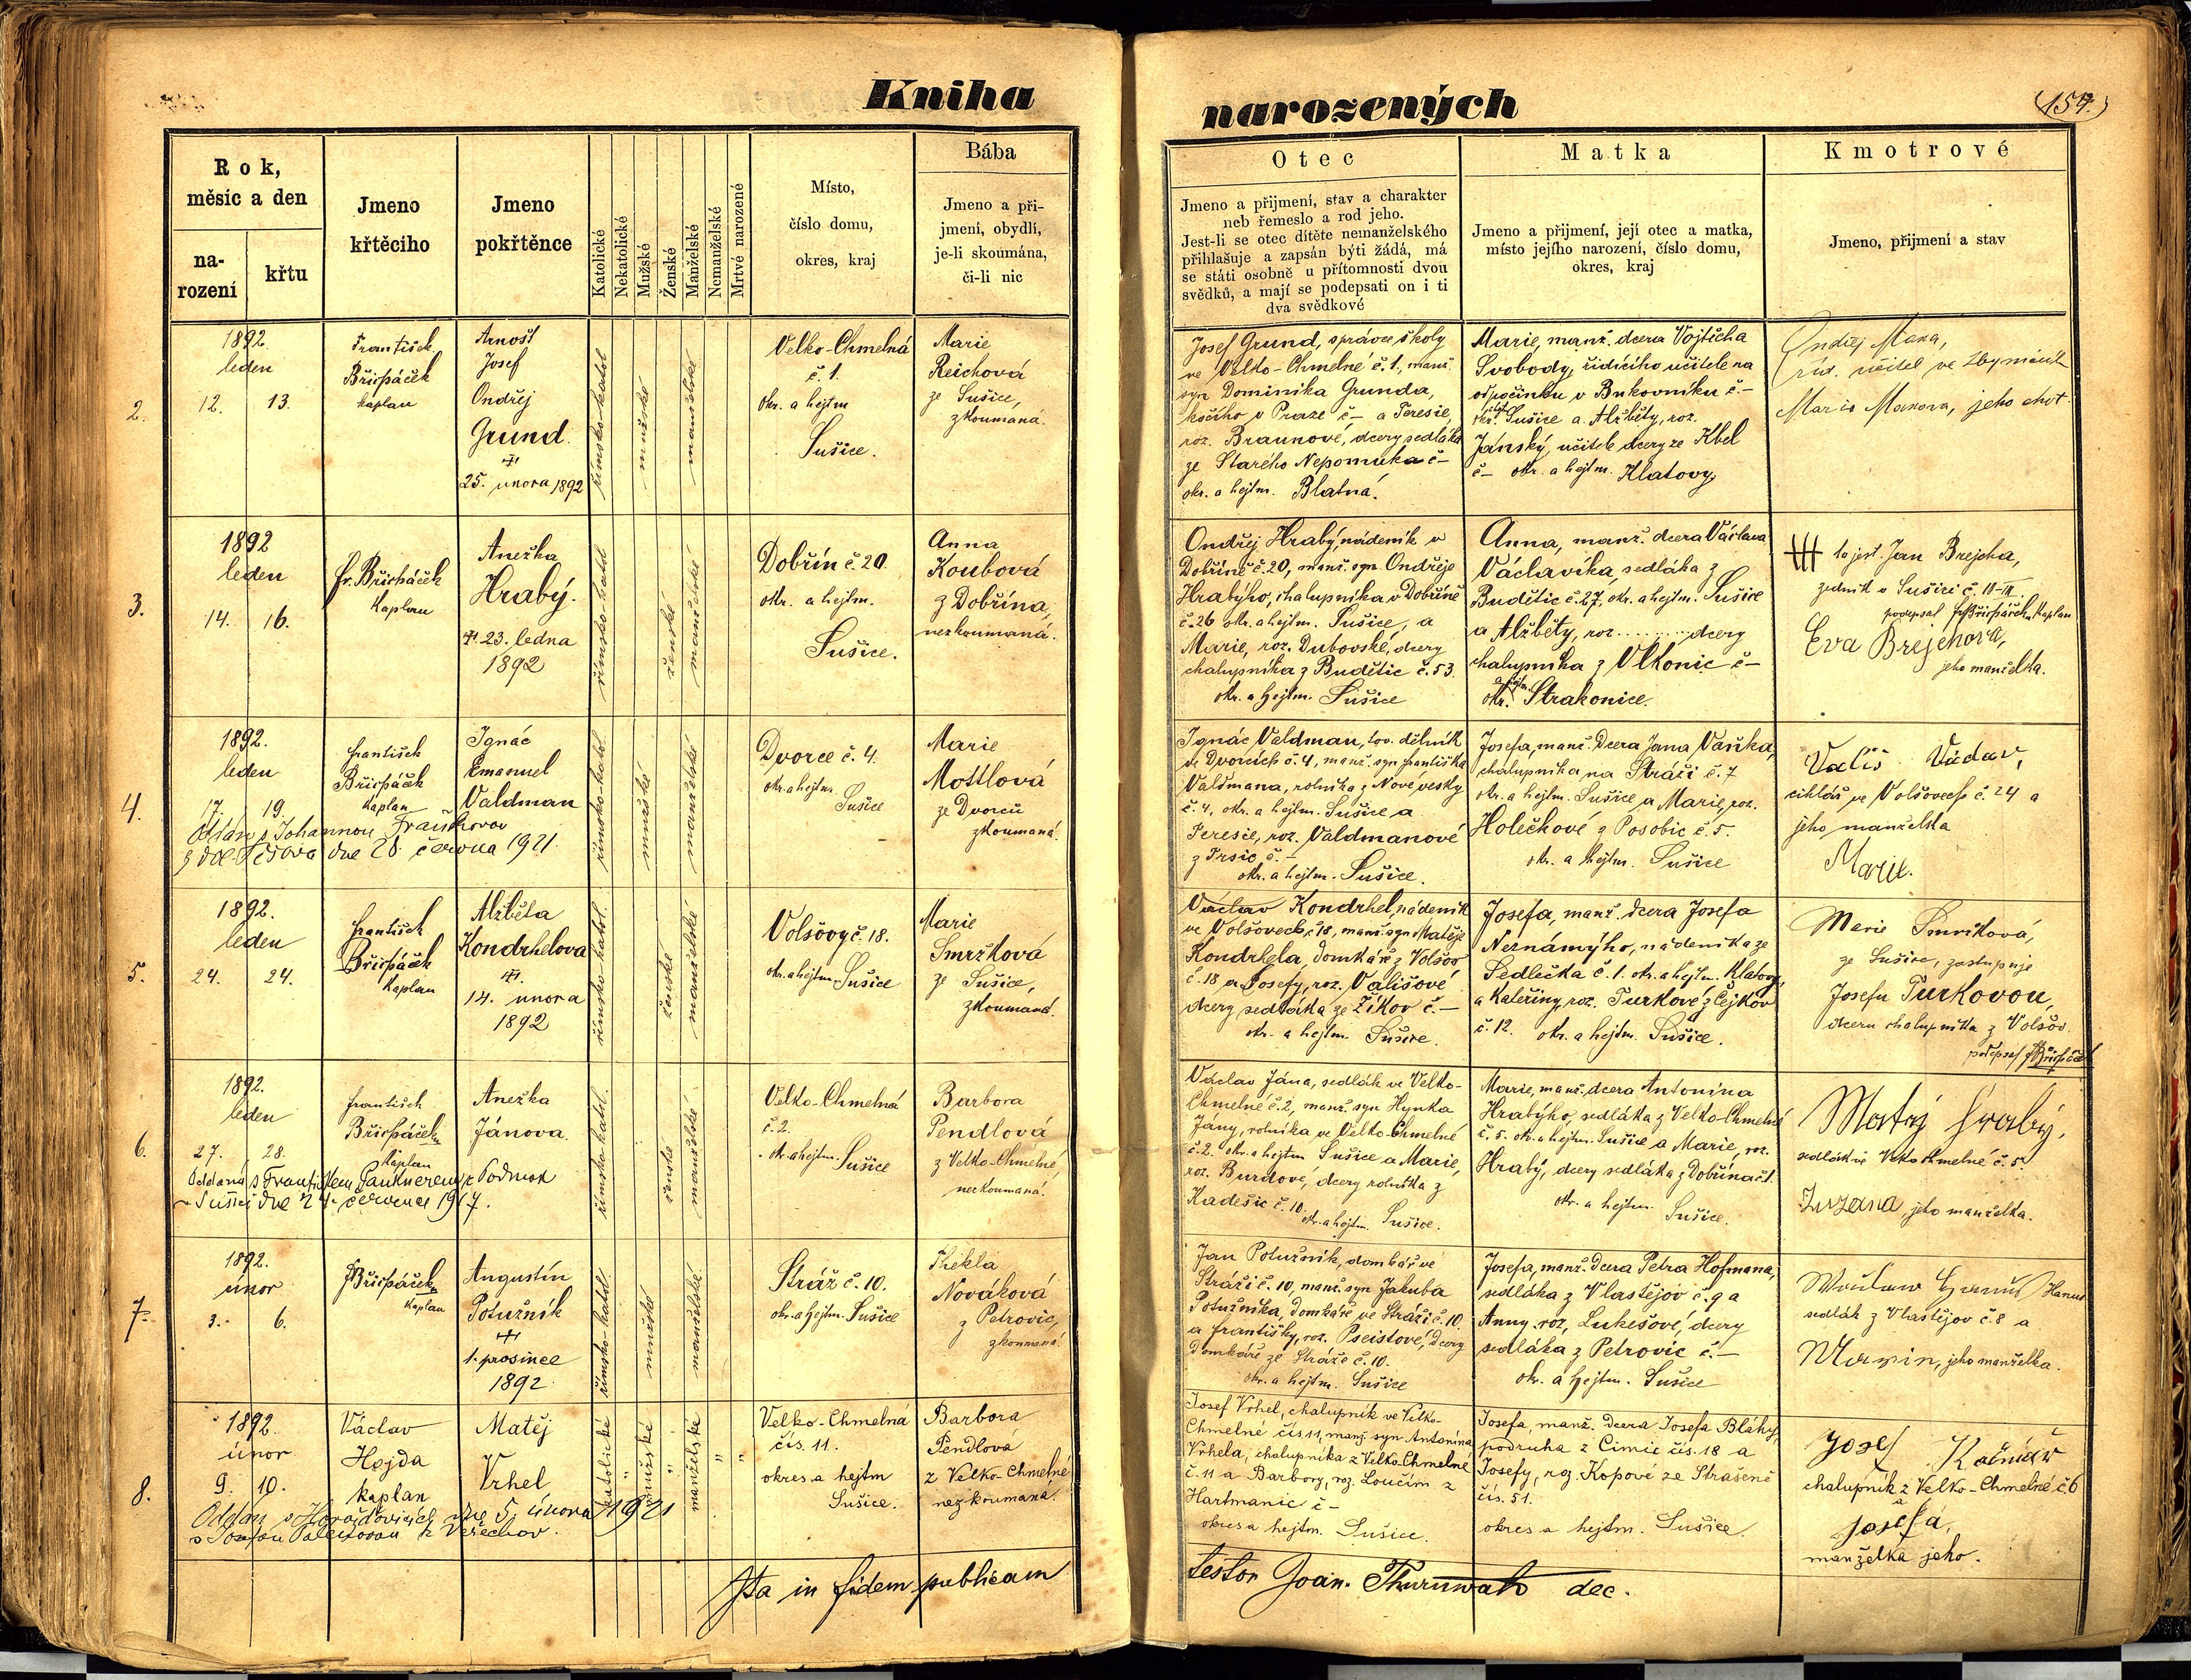 Kniha
narozených
(157.)
Rok,
měsíc a den
na-
rození
křtu
Jmeno
křtěcího
Jmeno
pokřtěnce
Katolické
Nekatolické
Mužské
Ženské
Manželské
Nemanželské
Mrtvě narozené
Místo,
číslo domu,
okres, kraj
Bába
Jmeno a při-
jmení, obydlí,
je-li skoumána,
či-li nic
Otec
Jmeno a přijmení, stav a charakter
neb řemeslo a rod jeho.
Jest-li se otec dítěte nemanželského
přihlašuje a zapsán býti žádá, má
se státi osobně u přítomnosti dvou
svědků, a mají se podepsati on i ti
dva svědkové
Matka
Jmeno a přijmení, její otec a matka,
místo jejího narození, číslo domu,
okres, kraj
Kmotrové
Jmeno, přijmení a stav
2.
1892.
leden
12. 13.
František
Břicháček
kaplan
Arnošt
Josef
Ondřej
Grund.
25. února 1892
římsko-katol
mužské
manželské
Velko-Chmelná
č. 1.
okr. a hejtm
Sušice.
Marie
Reichová
ze Sušice,
zkoumaná.
Josef Grund, správce školy
ve Velko-Chmelné č. 1, manž.
syn Dominika Grunda,
kočího v Praze č– a Teresie,
roz. Braunové, dcery sedláka
ze Starého Nepomuka č–
okr. a hejtm. Blatná.
Marie, manž. dcera Vojtěcha
Svobody, řídícího učitele na
odpočinku v Bukovníku č.–
okr. Sušice a Alžběty, roz.
Janský, učitele dcery ze Kbel
č– okr. a hejtm. Klatovy.
Ondřej Maxa,
říd. učitel ve
Marie Maxova, jeho chot
3.
1892
leden
14. 16.
Fr. Břicháček
Kaplan
Anežka
Hrabý.
23. ledna
1892
římsko-katol
ženské
manželské
Dobřín č. 20.
okr. a hejtm.
Sušice.
Anna
Koubová
z Dobřína,
nezkoumaná.
Ondřej Hrabý, nádeník v
Dobříně č. 20, manž. syn Ondřeje
Hrabýho, chalupníka v Dobříně
č. 26 okr. a hejtm. Sušice, a
Marie, roz. Dubovské, dcery
chalupníka z Budětic č. 53.
okr. a hejtm. Sušice
Anna, manž. dcera Václava
Václavíka, sedláka z
Budětic č. 27, okr. a hejtm. Sušice
a Alžběty, roz ......... dcery
chalupníka z Vlkonic č–
okr. a hejtm. Strakonice.
+++ to jest Jan Brejcha,
zedník v Sušici č. 11-III.
podepsal Fr Břicháček, Kaplan
Eva Brejchova,
jeho manželka.
4.
1892.
leden
17. 19.
František
Břicháček
kaplan
Ignác
Emanuel
Valdman
Oddán s Johannou
dne 28 června 1921.
římsko-katol.
mužské
manželské
Dvorce č. 4.
okr. a hejtm.
Sušice
Marie
Mottlová
ze Dvorců
zkoumaná.
Ignác Valdman, tov. dělník
ve Dvorcích č. 4, manž. syn Františka
Valdmana, rolníka z Nové vesky
č. 4, okr. a hejtm. Sušice a
Teresie, roz. Valdmanové
z Trsic č.–
okr. a hejtm. Sušice.
Josefa, manž. dcera Jana Vaňka,
chalupníka na Stráži č. 7
okr. a hejtm. Sušice a Marie, roz.
Holečkové z Posobic č. 5.
okr. a hejtm. Sušice
Vališ Václav,
cihlář ve Volšovech č. 24 a
jeho manželka
Marie.
5.
1892.
leden
24. 24.
František
Břicháček
Kaplan
Alžběta
Kondrhelova
14. února
1892
římsko-katol.
ženské
manželské
Volšovy č. 18.
okr. a hejtm. Sušice
Marie
Smržková
ze Sušice,
zkoumaná.
Václav Kondrhel, nádeník
ve Volšovech č. 18, manž. syn Matěje
Kondrhela, domkáře z Volšov
č. 18 a Josefy, roz. Vališové
dcery sedláka ze Žíkov č.–
okr. a hejtm. Sušice.
Josefa, manž. dcera Josefa
Neznámýho, nádeníka ze
Sedlečka č. 1. okr. a hejtm. Klatovy,
a Kateřiny roz. Turkové z Čejkov
č. 12. okr. a hejtm. Sušice.
Marie Smržková,
ze Sušice, zastupuje
Josefu Turkovou,
dceru chalupníka z Volšov.
podepsal Fr Břicháček
6.
1892.
leden
27. 28.
František
Břicháček
Kaplan
Anežka
Jánova.
Oddaná s Františkem
v Sušici dne 24. července 1917.
římsko-katol.
ženské
manželské
Velko-Chmelná
č. 2.
okr. a hejtm. Sušice
Barbora
Pendlová
z Velko-Chmelné,
nezkoumaná.
Václav Jána, sedlák ve Velko-
Chmelné č. 2, manž. syn Hynka
Jány, rolníka ve Velko-Chmelné
č. 2. okr. a hejtm Sušice a Marie,
roz. Burdové, dcery rolníka z
Kadešic č. 10. okr. a hejtm. Sušice.
Marie, manž. dcera Antonína
Hrabýho, sedláka z Velko-Chmelné
č. 5. okr. a hejtm. Sušice a Marie, roz.
Hrabý, dcery sedláka z Dobřína č. 1.
okr. a hejtm. Sušice.
Matěj Hrabý,
sedlák ve Velko Chmelné č. 5.
Zuzana, jeho manželka.
7.
1892.
únor
3. 6.
Fr Břicháček
Kaplan
Augustin
Potužník
1. prosince
1892
římsko-katol
mužské
manželské.
Stráž č. 10.
okr. a hejtm. Sušice
Thekla
Nováková
z Petrovic,
zkoumaná.
Jan Potužník, domkář ve
Stráži č. 10, manž. syn Jakuba
Potužníka, domkáře ve Stráži č. 10.
a Františky, roz. Pseistové, dcery
domkáře ze Stráže č. 10.
okr. a hejtm. Sušice
Josefa, manž. dcera Petra Hofmana,
sedláka z Vlastějov č. 9 a
Anny, roz. Lukešové, dcery
sedláka z Petrovic č.–
okr. a hejtm. Sušice
Hanuš
sedlák z Vlastějov č. 8 a
jeho manželka.
8.
1892.
únor
9. 10.
Václav
Hojda
kaplan
Matěj
Vrhel
Oddán v Horažďovicích dne 5. února 1921
katolické
mužské
manželské
Velko-Chmelná
čís. 11.
okres a hejtm
Sušice.
Barbora
Pendlová
z Velko-Chmelné
nezkoumana.
Josef Vrhel, chalupník ve Velko-
Chmelné čís. 11, manž. syn Antonína
Vrhela, chalupníka z Velko-Chmelné
č. 11 a Barbory, roz. Loučím z
Hartmanic č–
okres a hejtm. Sušice.
Josefa, manž. dcera Josefa Bláhy,
podruha z Čimic čís. 18 a
Josefy, roz. Kopové ze Strašeně
čís. 51.
okres a hejtm. Sušice.
Josef
chalupník z Velko-Chmelné č 6
a
Josefa,
manželka jeho.
Ita in fidem publicam
testor Joan. dec.